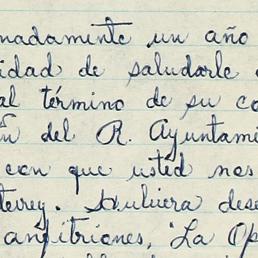 nadamente un año
idad de saludarle
al término de su co
n del R. Ayuntami
con que usted nos
terrey. Hubiera dese
anfitriones, "La Op